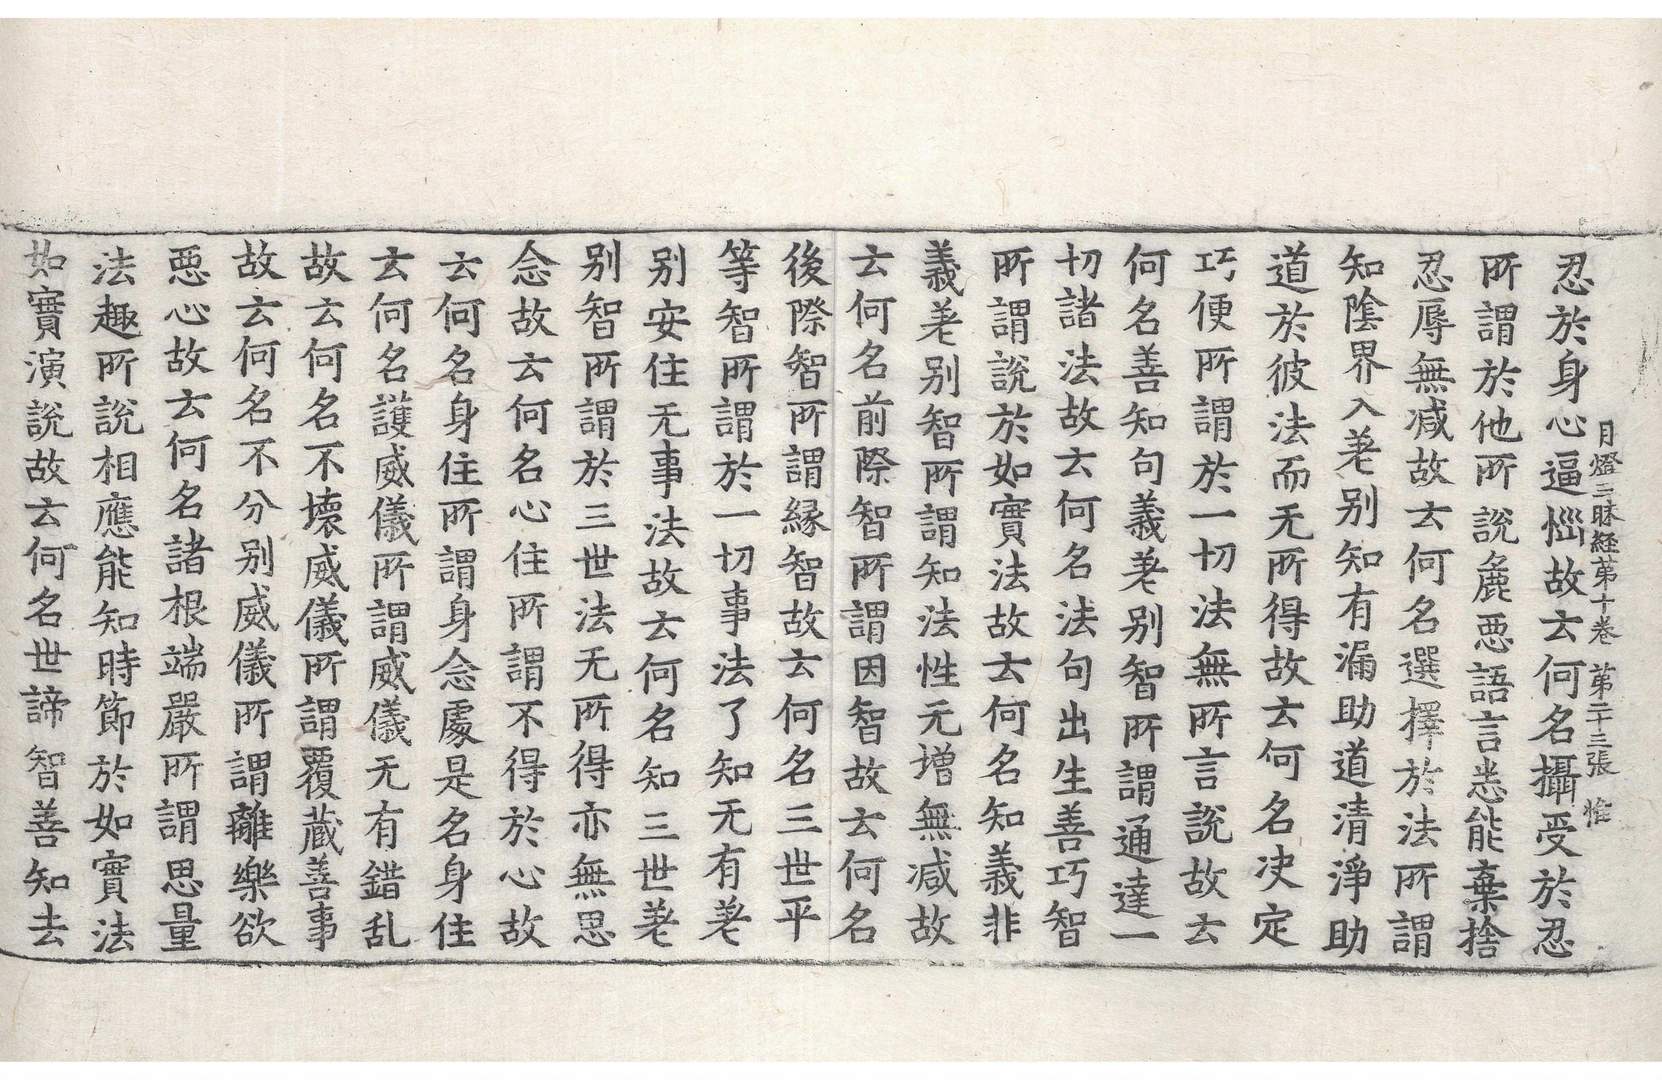 月燈三昧経苐十卷 苐二十三張 惟
忍於身心逼惱故云何名攝受於忍
所謂於他所說麁悪語言悉能棄捨
忍辱無減故云何名選擇於法所謂
知陰界入差别知有漏助道清淨助
道於彼法而无所得故云何名决定
巧便所謂於一切法無所言說故云
何名善知句義差别智所謂通達一
切諸法故云何名法句出生善巧智
所謂說於如實法故云何名知義非
義差别智所謂知法性无增無减故
云何名前際智所謂因智故云何名
後際智所謂緣智故云何名三世平
等智所謂於一切事法了知无有差
别安住无事法故云何名知三世差
别智所謂於三世法无所得亦無思
念故云何名心住所謂不得於心故
云何名身住所謂身念處是名身住
云何名護威儀所謂威儀无有錯乱
故云何名不壞威儀所謂覆蔵善事
故云何名不分别威儀所謂離樂欲
悪心故云何名諸根端嚴所謂思量
法趣所說相應能知時節於如實法
如實演說故云何名世諦智善知去